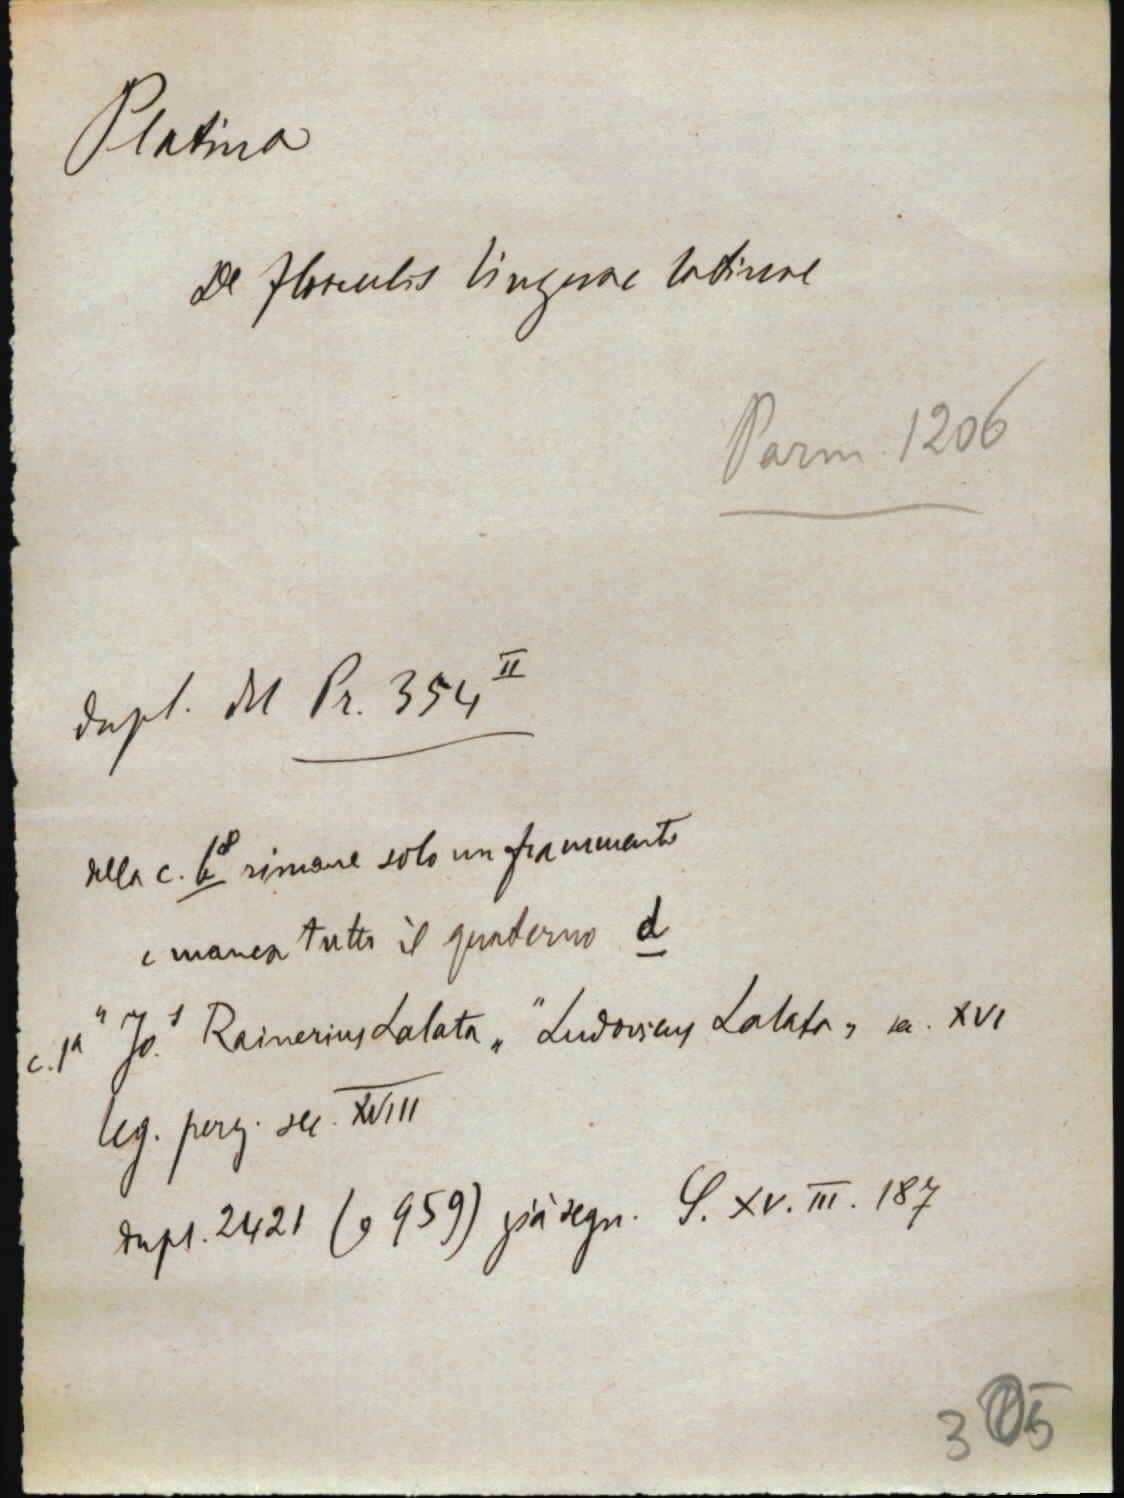 Platina
De flosculis linguae latinae
Parm. 1206
dupl. del Pr. 354 II
della c. b8 rimane solo un frammento
e manca tutto il quaderno d
c. 1a "Jo.s Rainerius Lalata" "Ludovicus Lalata" sec. XVI
leg. perg. sec. XVIII
dupl. 2421 (g 959) già segn. S. XV. III. 187